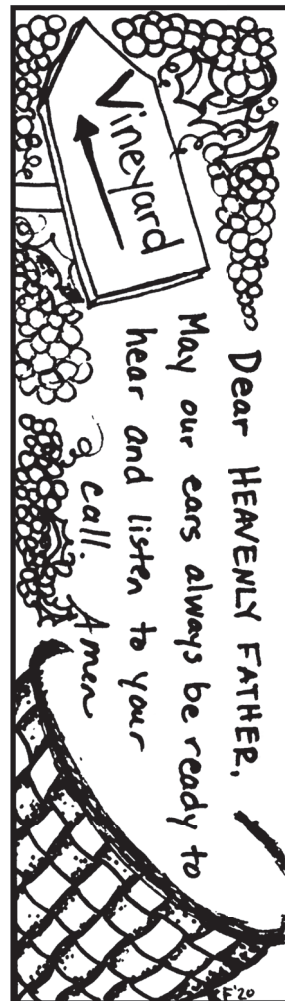 Vineyard
Dear HEAVENLY FATHER,
May our ears always be ready to
hear and listen to your
call. Amen